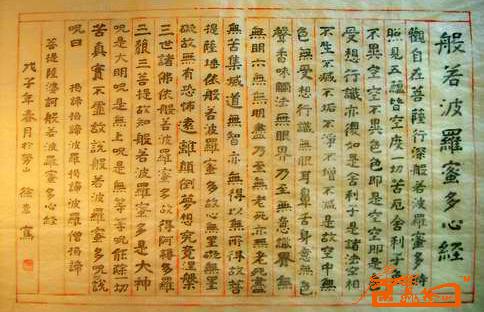 般若波羅蜜多心經
觀自在菩薩行深般若波羅蜜多時
照見五蘊皆空度一切苦厄舍利子色
不異空空不異色色即是空空即是色
受想行識亦復如是舍利子是諸法空相
不生不滅不垢不淨不增不減是故空中無
色無受想行識無眼耳鼻舌身意無色
聲香味觸法無眼界乃至無意識界無
無明亦無無明盡乃至無老死亦無老死盡
無苦集滅道無智亦無得以無所得故菩
提薩埵依般若波羅蜜多故心無罣礙無罣
礙故無有恐怖遠離顛倒夢想究竟涅槃
三世諸佛依般若波羅蜜多故得阿耨多羅
三藐三菩提故知般若波羅蜜多是大神
咒是大明咒是無上咒是無等等咒能除一切
苦真實不虛故說般若波羅蜜多咒說
咒曰 揭諦揭諦波羅揭諦波羅僧揭諦
菩提薩婆訶般若波羅蜜多心經
戊子年春月於 山 徐